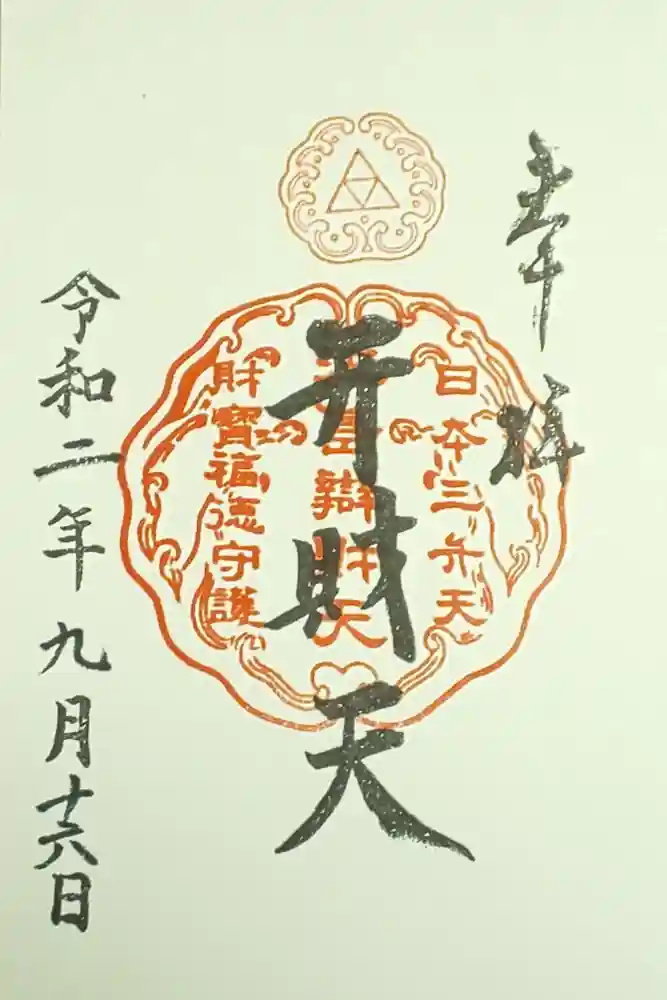 奉拝
日本三弁天
辯財天
財寶福徳守護
弁財天
令和二年九月十六日